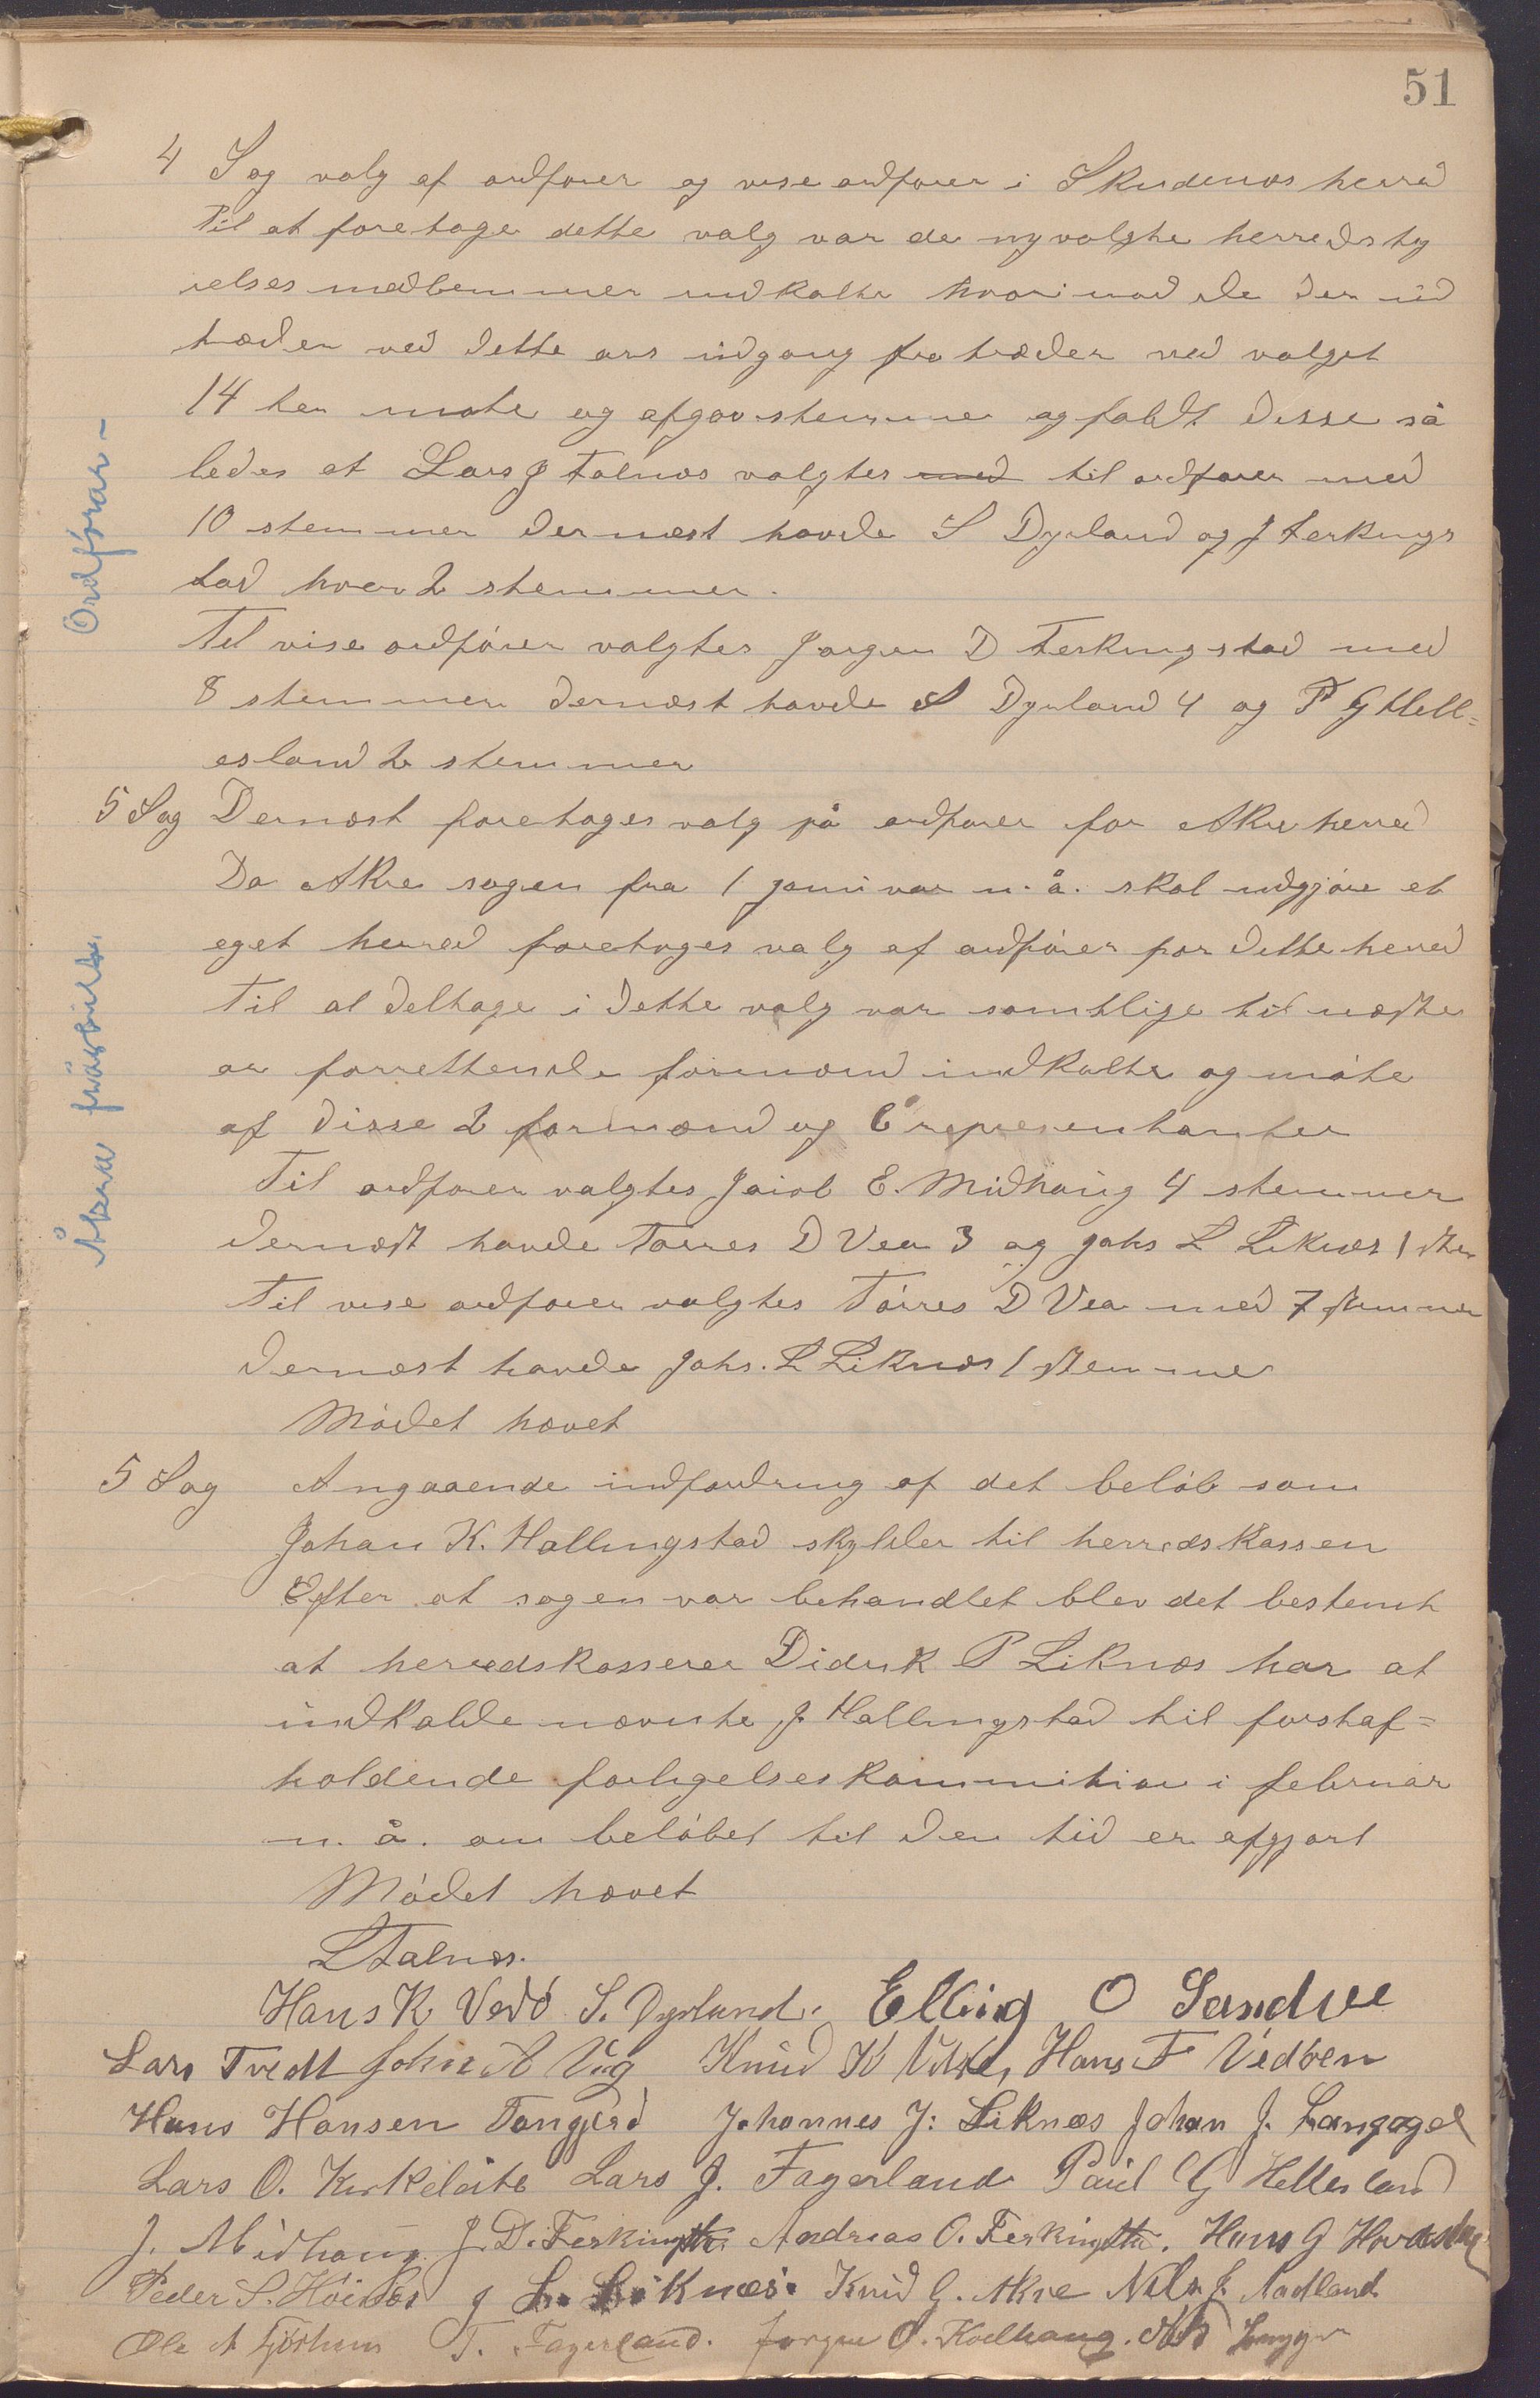 51
4 Sag valg af ordfører og vise ordfører i Skudenæs herred
Til at foretage dette valg var de nyvalgte herredsty
relses medlemmer indkalte hvorimod de der ud
træder ved dette års udgang fratræder ved valget
14 ten møte og afgav stemmer og faldt disse så
ledes at Lars J Falnæs valgtes med til ordfører med
10 stemmer dernæst havde S Dyrland og J Ferkings
tad hver 2 stemmer.
Til vise ordfører valgtes Jørgen D Ferkingstad med
8 stemmer dernæst havde S Dyrland 4 og P G Hell=
esland 2 stemmer
5 Sag Dernæst foretages valg på ordfører for Akre herred
Da Akre sogen fra 1 januar n. å. skal udgjøre et
eget herred foretoges valg af ordfører for dette herred
Til at deltage i dette valg var samtlige til næste
år forrettende formænd indkalte og møte
af disse 2 formænd og 6 representanter
Til ordfører valgtes Jacob E. Midhaug 4 stemmer
dernæst havde Tørres D Vea 3 og Johs L Liknes 1 stem
Til vise ordfører valgtes Tørres D Vea med 7 stemmer
dernæst havde Johs. L Liknæs 1 stemme
Mødet hævet
5 Sag Angaaende indfordring af det beløb som
Johan K. Hallingstad skylder til herredskassen
Efter at sagen var behandlet blev det bestemt
at herredskasserer Didrik P Liknæs har at
indkalde nævnte J. Hallingstad til førstaf=
holdende forligelseskommition i februar
n. å. om beløbet til den tid er afgjort
Mødet hævet
L Falnæs.
Hans K Vedø S. Dyrland. Elling O Sandve
Lars Tvedt John A Vig Knud K Hans F Vedøen
Hans Hansen Tangjerd Johannes J: Liknæs Johan J. Langåger
Lars O. Kirkeleite Lars J. Fagerland Paul G Hellesland
J. Midhaug J. D. Ferkingsta. Andreas O. Ferkingsta. Hans G
Peder S. J L. Liknæs. Knud G. Akre Nils J. Aadland
Ole A Fjörtun T. Fagerland. Jørgen O. Kvalhaug.
Ordførar -
Åkra fråskilt.